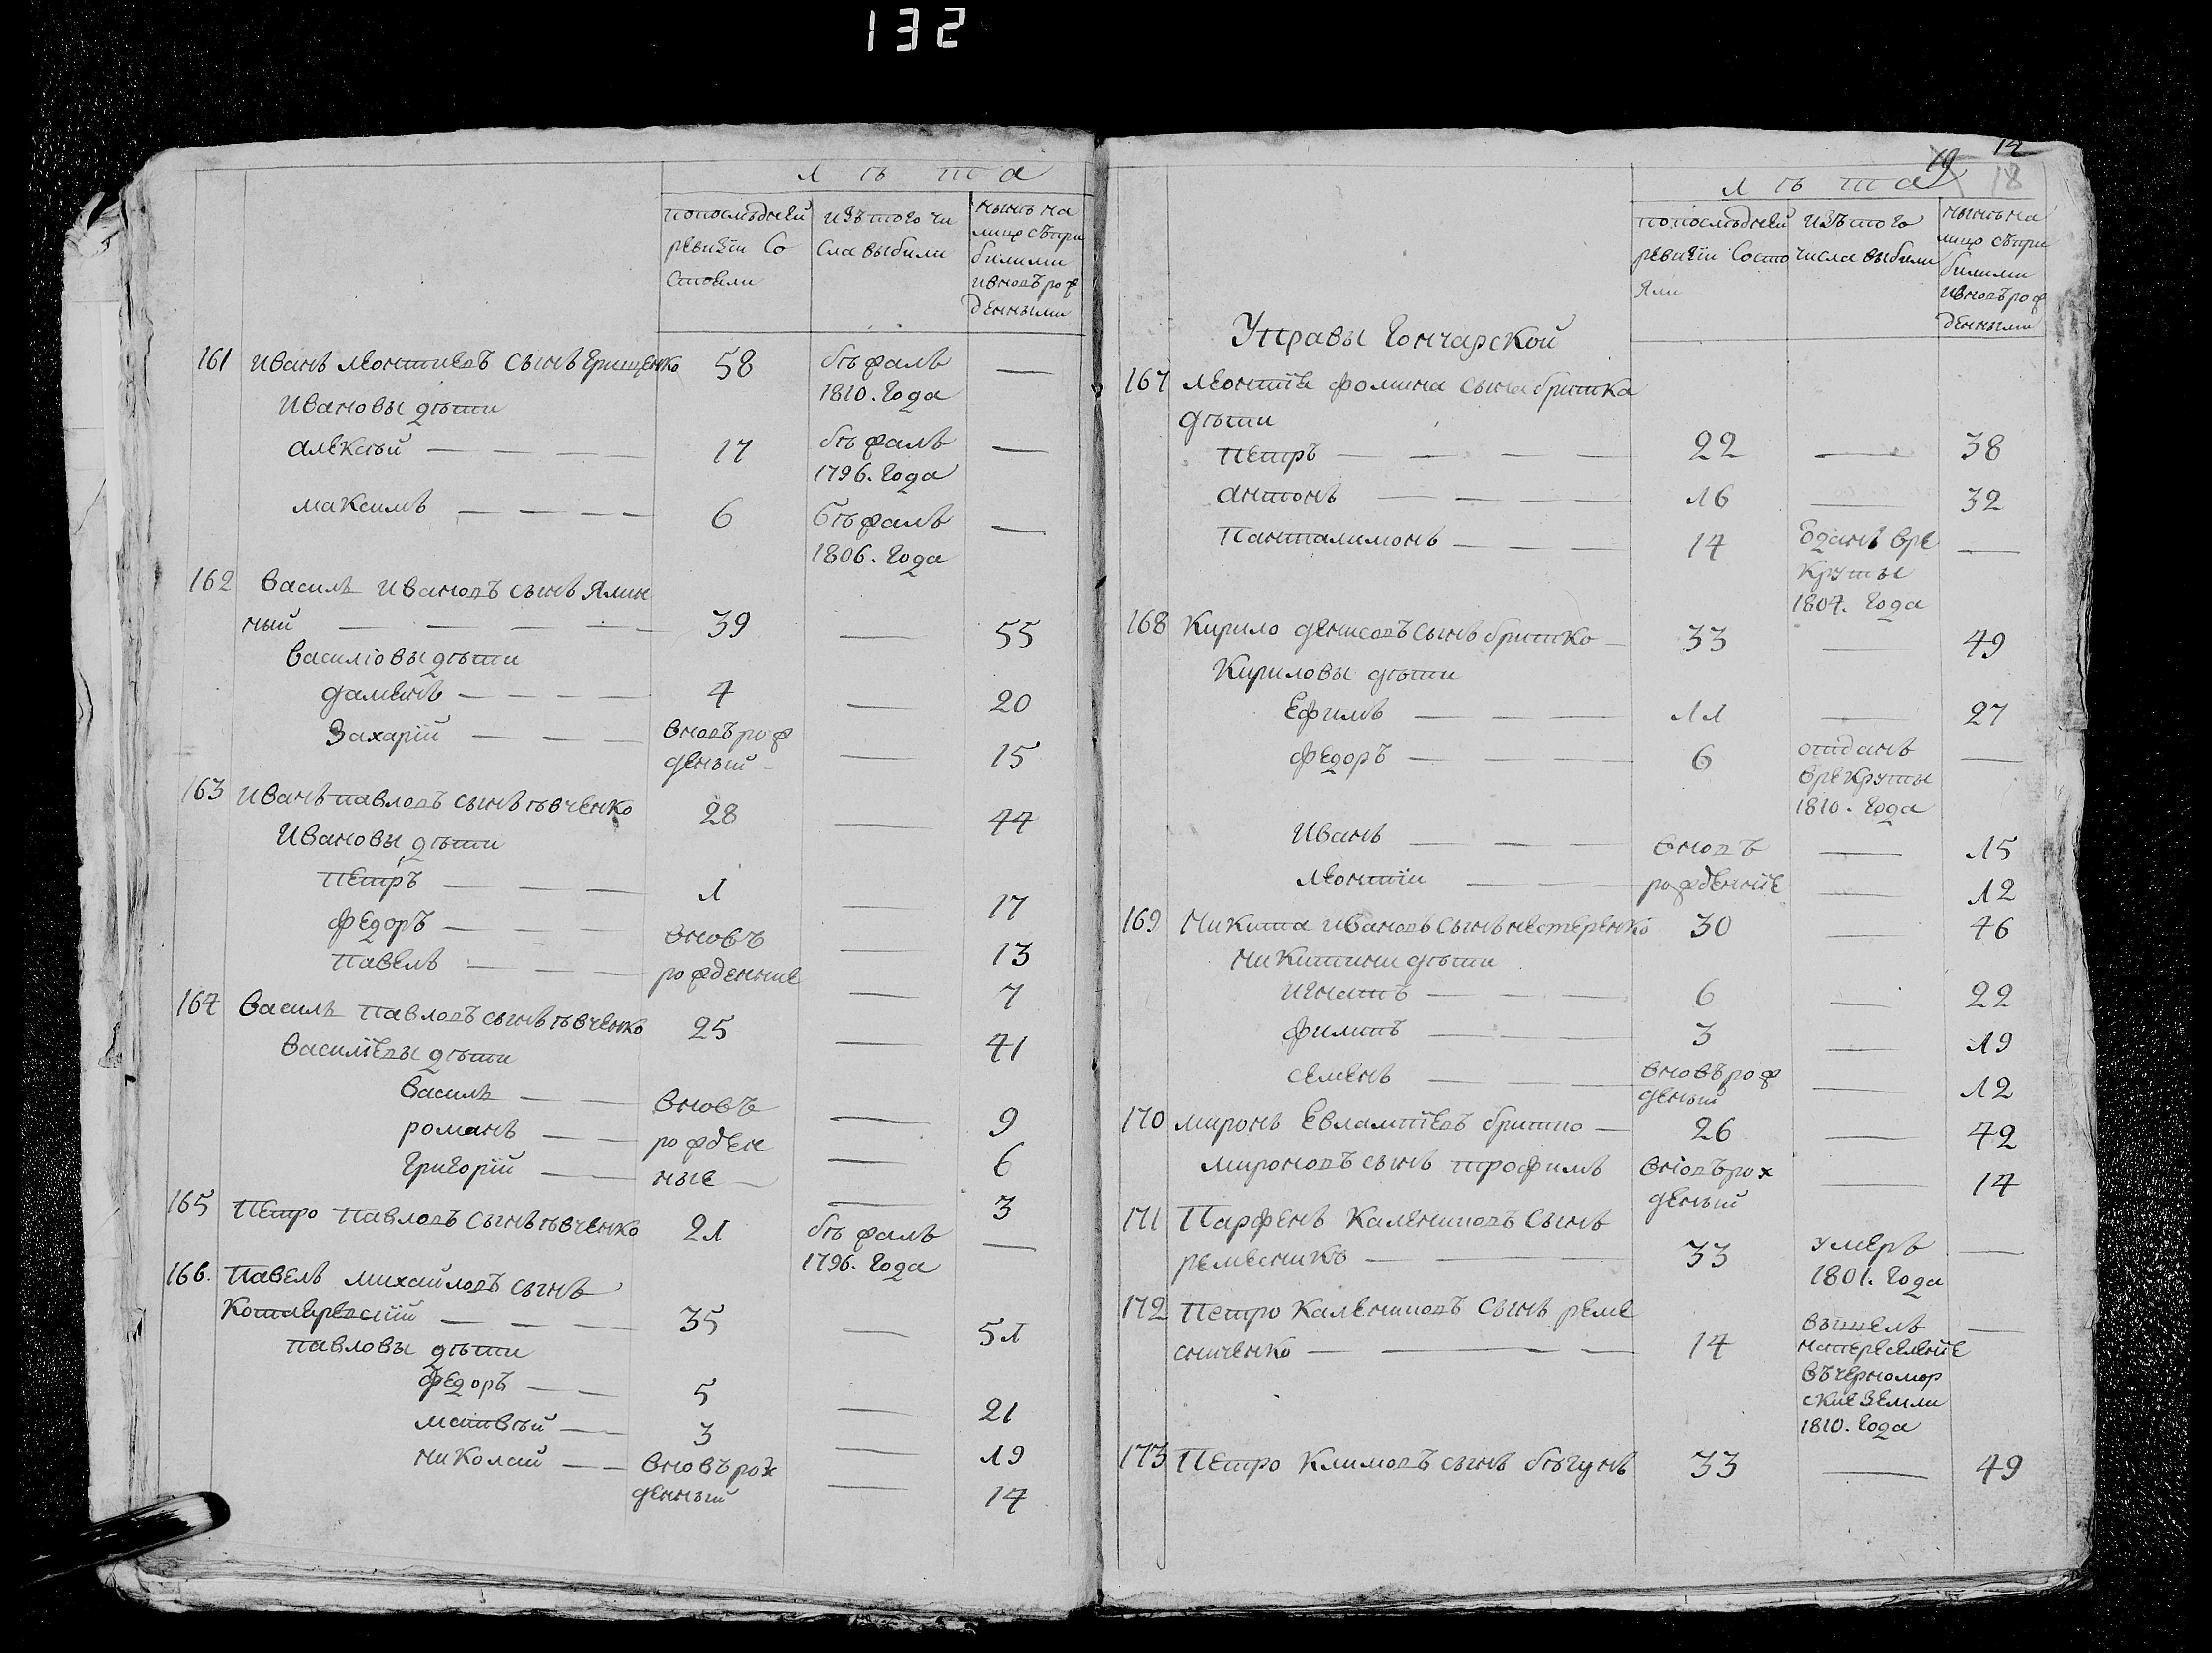 132
лѣта
попослѣдней ревизіи Со стоели
изътого чи сла выбили
нынѣ на лицо съпри билими ивновърож денными
161 иванъ леонтиевъ сынъ грищенко 58 бѣжалъ —
1810. года
ивановы дѣти
алексѣй — — — — 17 бѣжалъ —
1796. года
максимъ — — — — 6 бѣжалъ —
1806. года
162 василь ивановъ сынъ ялин
ный — — — — — 39 — 55
василіовы дѣти
дамянъ — — — — 4 — 20
захарій — — — вновърож
деный — — 15
163 иванъ павловъ сынъ ѣвченко 28 — 44
ивановы дѣти
петръ — — — 1 — 17
федоръ — — — вновъ — 13
павелъ — — — рожденние — 7
164 василь павловъ сынъ ѣвченко 25 — 41
василіевы дѣти
василь — — вновъ — 9
романъ — — рожден — 6
григорій — — ные — — 3
165 петро павловъ сынъ ѣвченко 21 бѣжалъ —
1796. года
166. павелъ михайловъ сынъ
— — — — 35 — 51
павловы дѣти
федоръ — — 5 — 21
матвѣй — — 3 — 19
николай — — вновърож
денный — 14
14
19 18
лѣта
попослѣдней ревизіи Состо яли
изътого числа выбили
нынѣ на лицо съпри билими ивновърож денными
Управы гончарской
167 леонтія фомина сына бритка
дѣти
петръ — — — — 22 — 38
антонъ — — — — 16 — 32
панталимонъ — — — 14 одданъ вре —
круты
1807. года
168 кирило денисовъ сынъ бритко — 33 — 49
кириловы дѣти
ефимъ — — — 11 — 27
федоръ — — — 6 отданъ —
врекруты
1810. года
иванъ — — — вновъ — 15
леонтій — — — рожденніе — 12
169 никита ивановъ сынъ нестеренко 30 — 46
никитини дѣти
игнатъ — — — 6 — 22
филипъ — — — 3 — 19
семенъ — — — вновърож
деный — 12
170 миронъ евлампіевъ бритко — 26 — 42
мироновъ сынъ трофимъ вновърож
деный — 14
171 парфенъ калениковъ сынъ
ремесникъ — — — 33 умеръ —
1801. года
172 петро калениковъ сынъ реме
сниченко — — — — 14 вышелъ —
напереселеніе
въчерномор
скіе земли
1810. года
173 петро климовъ сынъ бѣгунъ 33 — 49